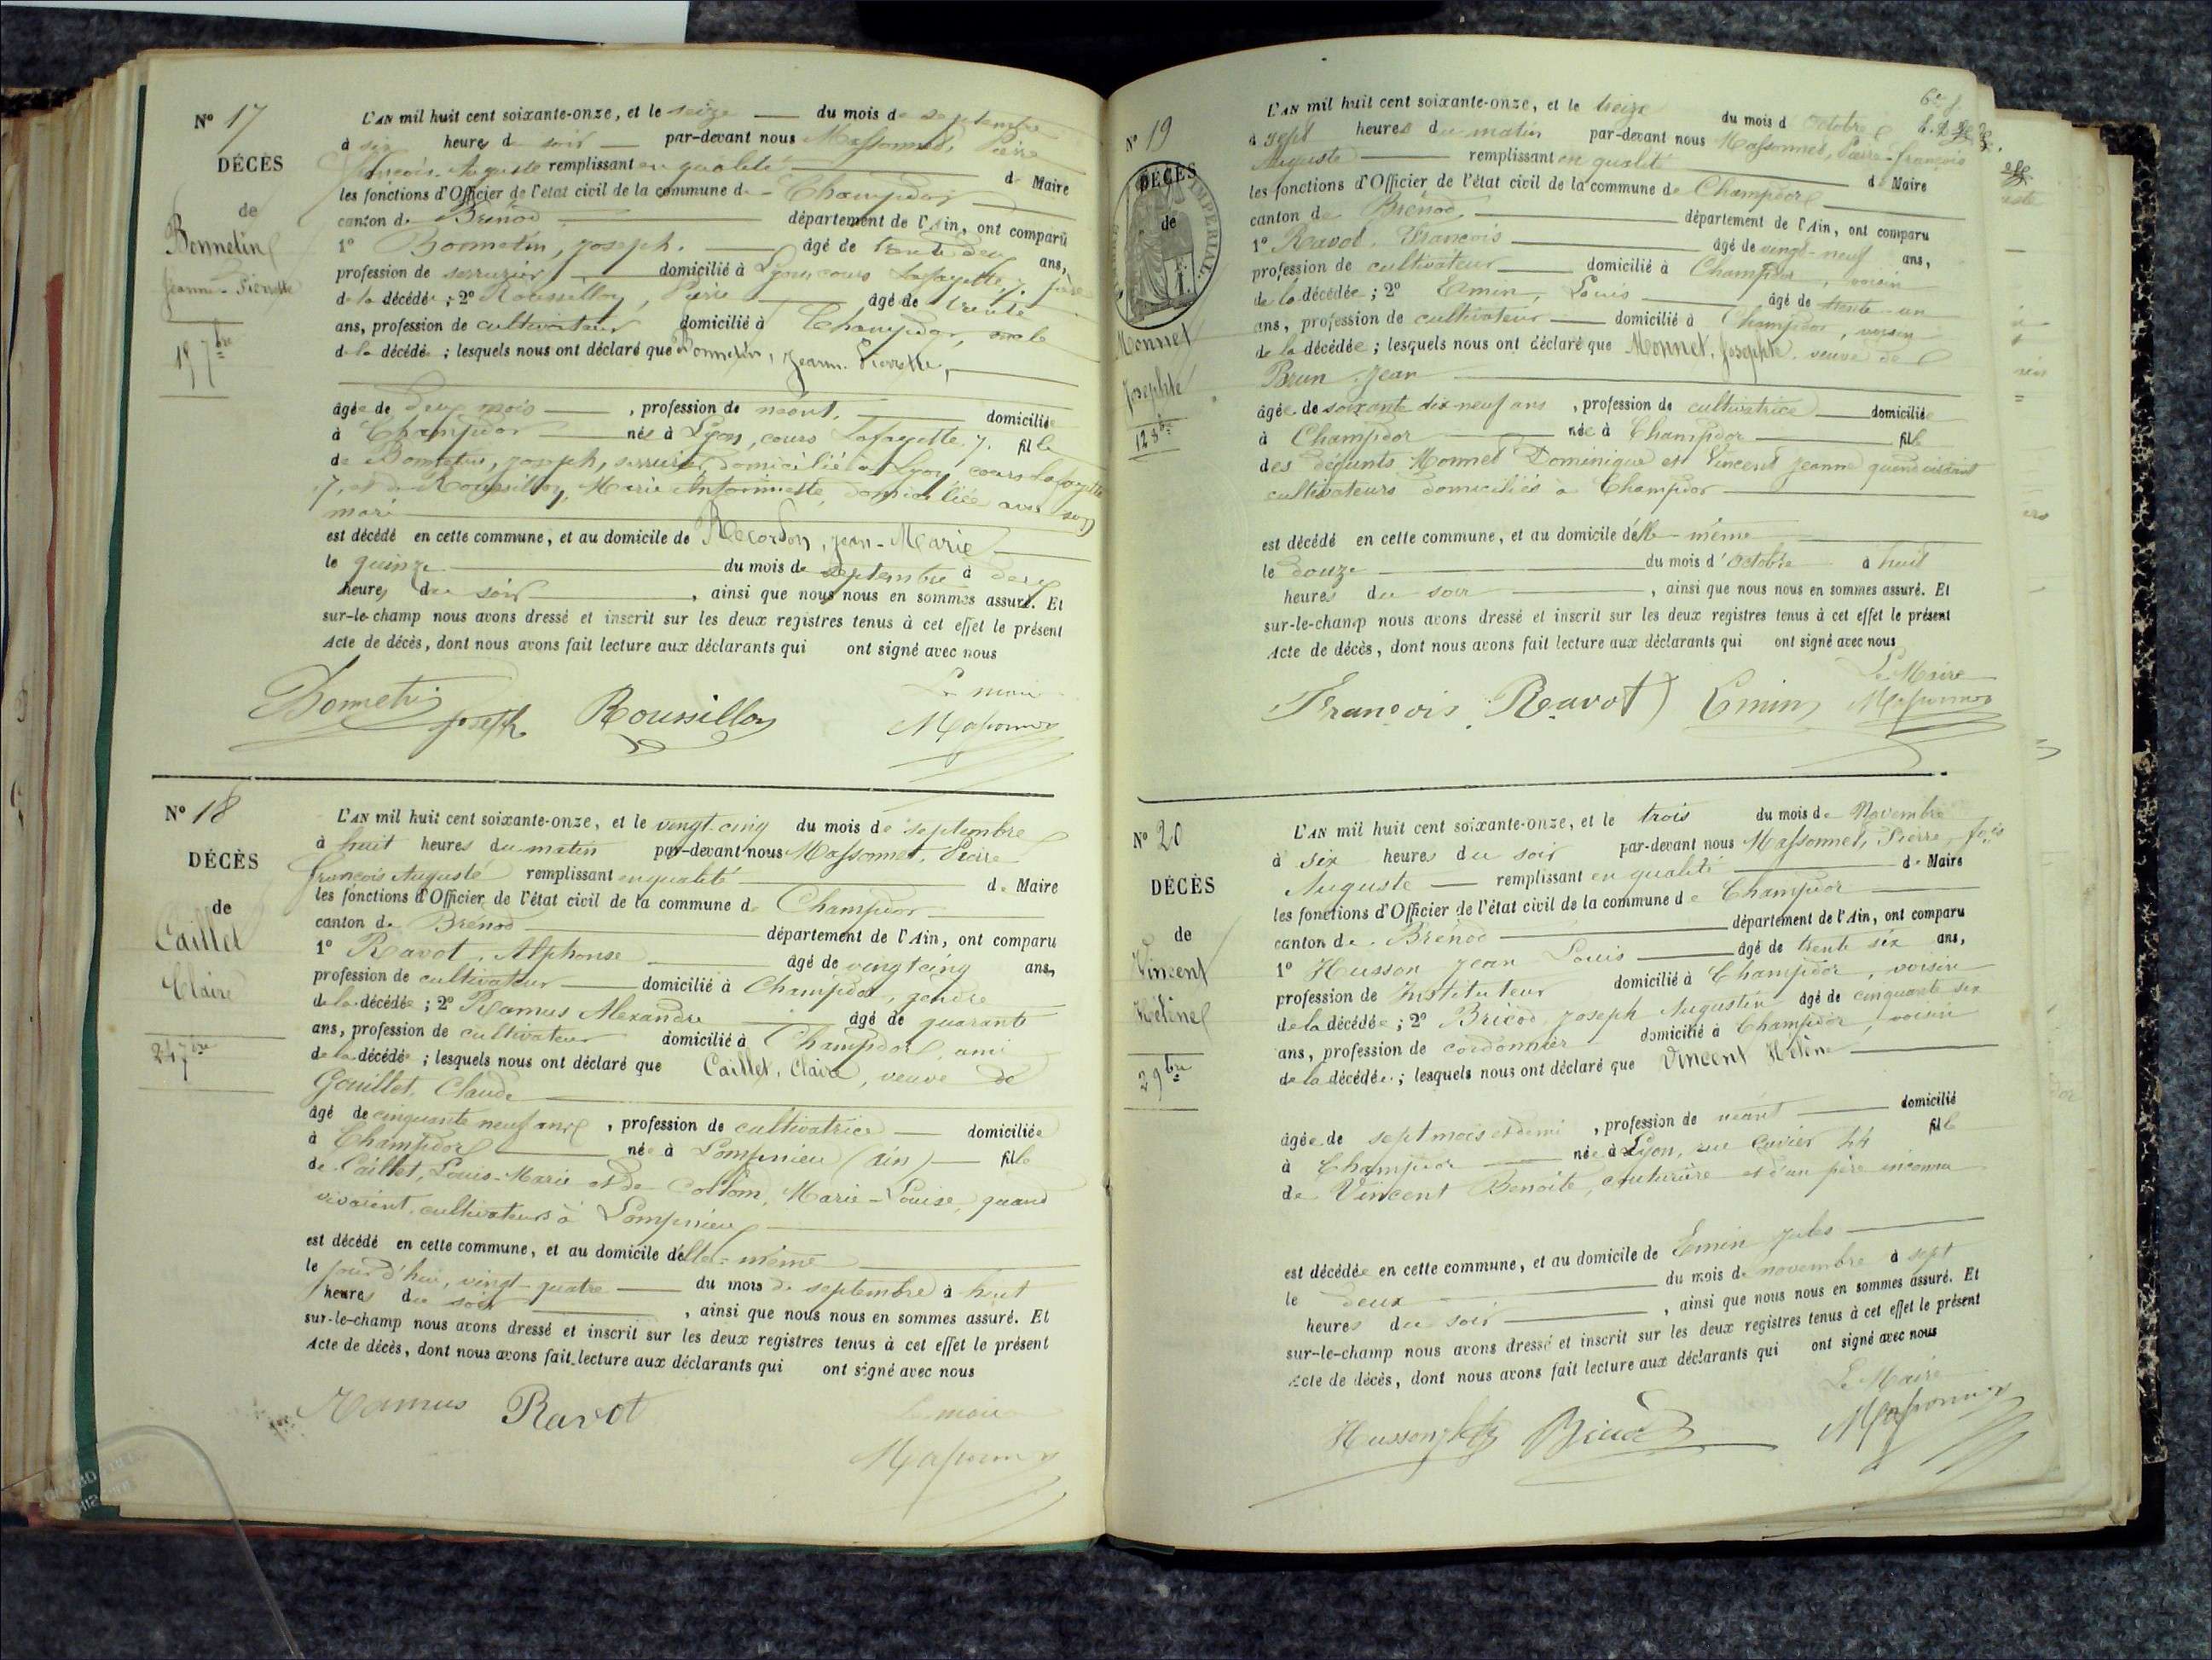 N° 17
DÉCÈS
de
Bonnetin
Jeanne-Pierrette
15 7bre
L'AN mil huit cent soixante-onze, et le seize du mois de septembre
à six heures du soir par-devant nous Massonnet, Pierre
François-Auguste remplissant en qualité de Maire
les fonctions d'Officier de l'état civil de la commune de Champdor
canton de Brénod département de l'Ain, ont comparu
1° Bonnetin, Joseph. âgé de trente deux ans,
profession de serrurier domicilié à Lyon, cours Lafayette, 7. père
de la décédée ; 2° Roussillon, Pierre âgé de trente
ans, profession de cultivateur domicilié à Champdor, oncle
de la décédée ; lesquels nous ont déclaré que Bonnetin, Jeanne-Pierrette,
âgée de deux mois , profession de néant. domiciliée
à Champdor née à Lyon, cours Lafayette, 7. fille
de Bonnetin, Joseph, serrurier, domicilié à Lyon, cours Lafayette
7, et de Roussillon, Marie Antoinette, domiciliée avec son
mari
est décédé en cette commune, et au domicile de Recordon, Jean-Marie
le quinze du mois de septembre à deux
heures du soir , ainsi que nous nous en sommes assuré. Et
sur-le-champ nous avons dressé et inscrit sur les deux registres tenus à cet effet le présent
Acte de décès, dont nous avons fait lecture aux déclarants qui ont signé avec nous
Le maire
Bonnetin Joseph Roussillon Massonnet
N° 18
DÉCÈS
de
Caillet
Claire
24 7bre
L'AN mil huit cent soixante-onze, et le vingt-cinq du mois de septembre
à huit heures du matin par-devant nous Massonnet, Pierre
François Auguste remplissant en qualité de Maire
les fonctions d'Officier de l'état civil de la commune de Champdor
canton de Brénod département de l'Ain, ont comparu
1° Ravot, Alphonse âgé de vingt cinq ans,
profession de cultivateur domicilié à Champdor, gendre
de la décédée ; 2° Ramus Alexandre âgé de quarante
ans, profession de cultivateur domicilié à Champdor, ami
de la décédée ; lesquels nous ont déclaré que Caillet, Claire, veuve de
Gaillet, Claude
âgé de cinquante neuf ans , profession de cultivatrice domiciliée
à Champdor née à Lompnieu (Ain) fille
de Caillet, Louis-Marie et de Collom, Marie-Louise, quand
vivaient, cultivateurs à Lompnieu
est décédé en cette commune, et au domicile d'elle-même
le jour d'hui, vingt-quatre du mois de septembre à huit
heures du soir , ainsi que nous nous en sommes assuré. Et
sur-le-champ nous avons dressé et inscrit sur les deux registres tenus à cet effet le présent
Acte de décès, dont nous avons fait lecture aux déclarants qui ont signé avec nous
Ramus Ravot Le maire
Massonnet
N° 19
DÉCÈS
de
IMPÉRIAL
Monnet
Josephte
12 8bre
L'AN mil huit cent soixante-onze, et le treize du mois d'Octobre
à sept heures du matin par-devant nous Massonnet, Pierre-François
Auguste remplissant en qualité de Maire
les fonctions d'Officier de l'état civil de la commune de Champdor
canton de Brénod département de l'Ain, ont comparu
1° Ravot, François âgé de vingt-neuf ans,
profession de cultivateur domicilié à Champdor, voisin
de la décédée ; 2° Emin, Louis âgé de trente-un
ans, profession de cultivateur domicilié à Champdor, voisin
de la décédée ; lesquels nous ont déclaré que Monnet, Josephte, veuve de
Brun Jean
âgée de soixante dix neuf ans , profession de cultivatrice domiciliée
à Champdor née à Champdor fille
des défunts Monnet Dominique et Vincent Jeanne quand vivaient
cultivateurs domiciliés à Champdor
est décédé en cette commune, et au domicile d'elle-même
le douze du mois d'Octobre à huit
heures du soir , ainsi que nous nous en sommes assuré. Et
sur-le-champ nous avons dressé et inscrit sur les deux registres tenus à cet effet le présent
Acte de décès, dont nous avons fait lecture aux déclarants qui ont signé avec nous
Le Maire
François Ravot Emin Massonnet
N° 20
DÉCÈS
de
Vincent
Hélène
2 9bre
L'AN mil huit cent soixante-onze, et le trois du mois de Novembre
à six heures du soir par-devant nous Massonnet, Pierre-fois
Auguste remplissant en qualité de Maire
les fonctions d'Officier de l'état civil de la commune de Champdor
canton de Brénod département de l'Ain, ont comparu
1° Husson Jean Louis âgé de trente six ans,
profession de Instituteur domicilié à Champdor, voisin
de la décédée ; 2° Bricod Joseph Augustin âgé de cinquante six
ans, profession de cordonnier domicilié à Champdor, voisin
de la décédée ; lesquels nous ont déclaré que Vincent Hélène
âgée de sept mois et demi , profession de néant domicilié
à Champdor née à Lyon, rue Cuvier 44 fille
de Vincent Benoite, couturière et d'un père inconnu
est décédée en cette commune, et au domicile de Emin Jules
le deux du mois de novembre à sept
heures du soir , ainsi que nous nous en sommes assuré. Et
sur-le-champ nous avons dressé et inscrit sur les deux registres tenus à cet effet le présent
Acte de décès, dont nous avons fait lecture aux déclarants qui ont signé avec nous
Le Maire
Husson Bricod Massonnet